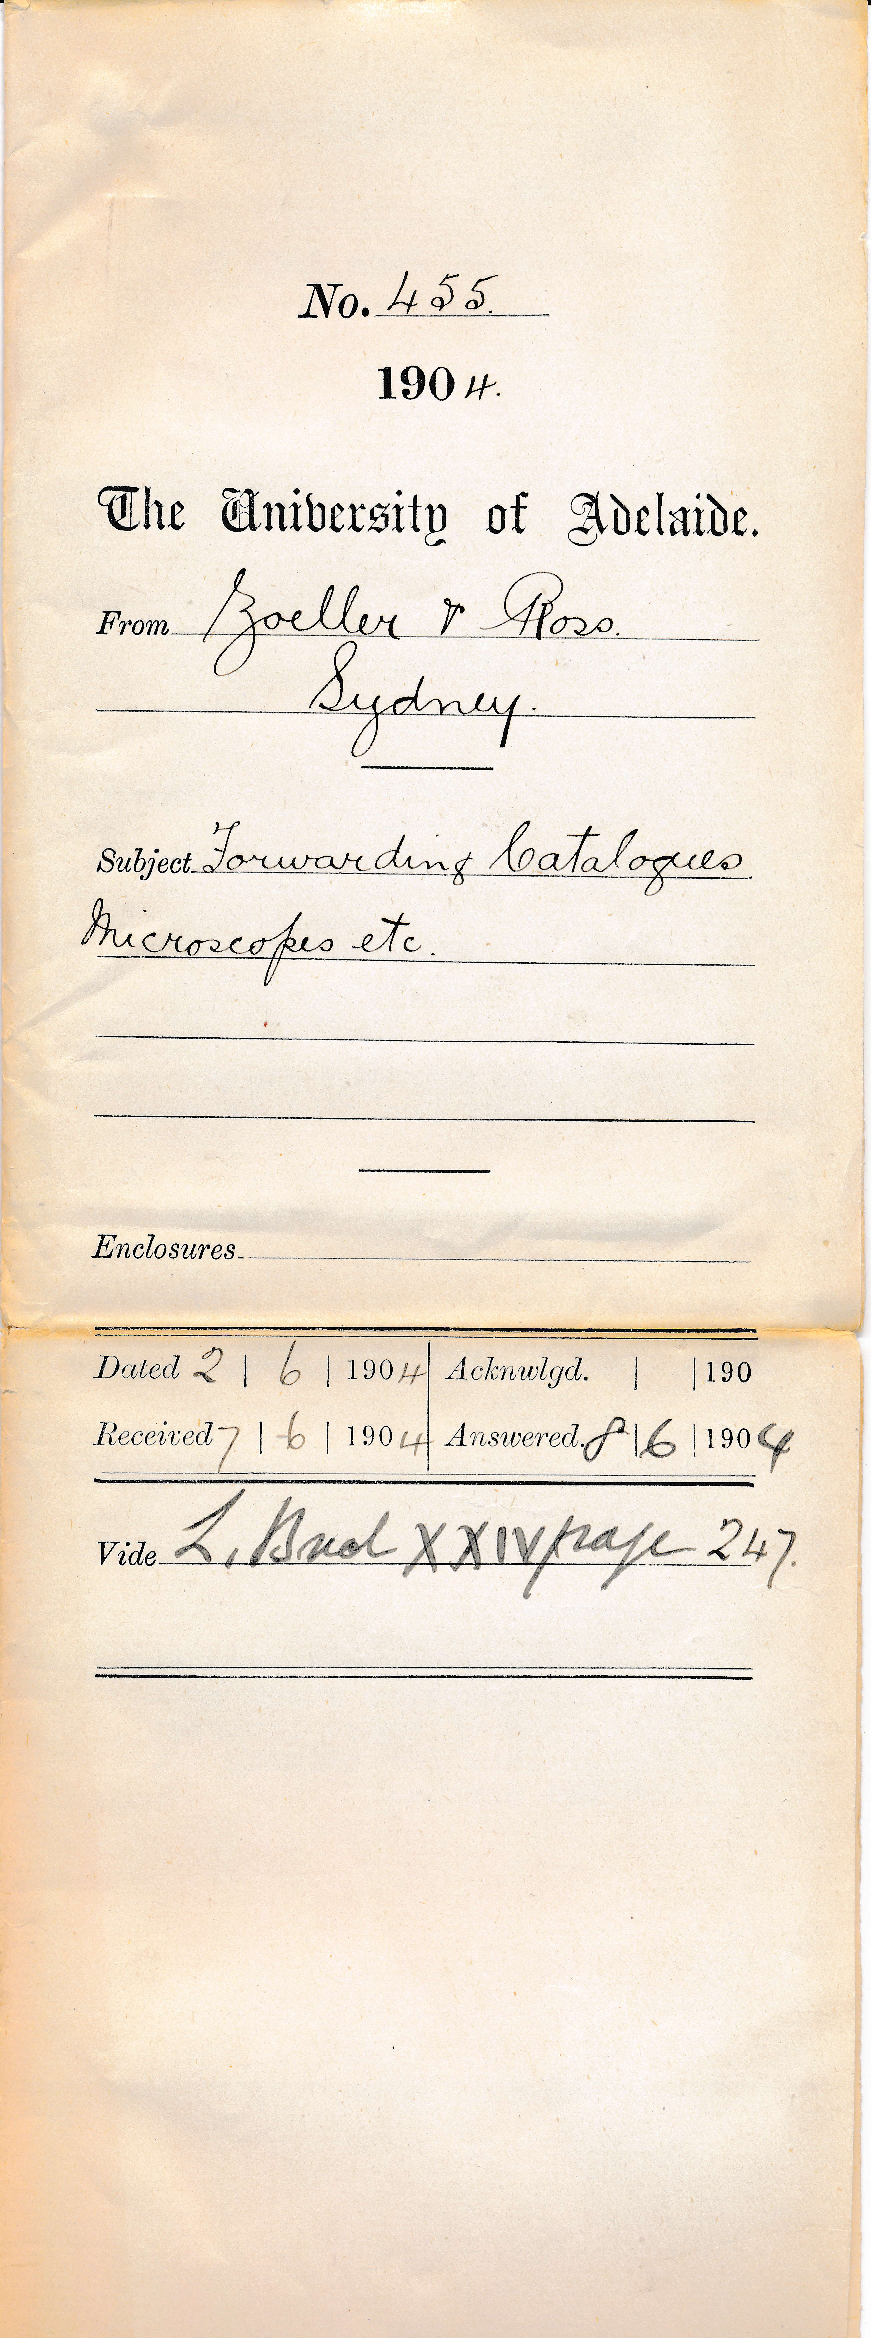 No. 455.
1904.
The University of Adelaide.
From Zoeller & Ross.
Sydney.
Subject Forwarding Catalogues
Microscopes etc.
Enclosures
Dated 2 | 6 | 1904 Acknwlgd. | | 190
Received 7 | 6 | 1904 Answered. 8 | 6 | 1904
Vide L. XXIV page 247.